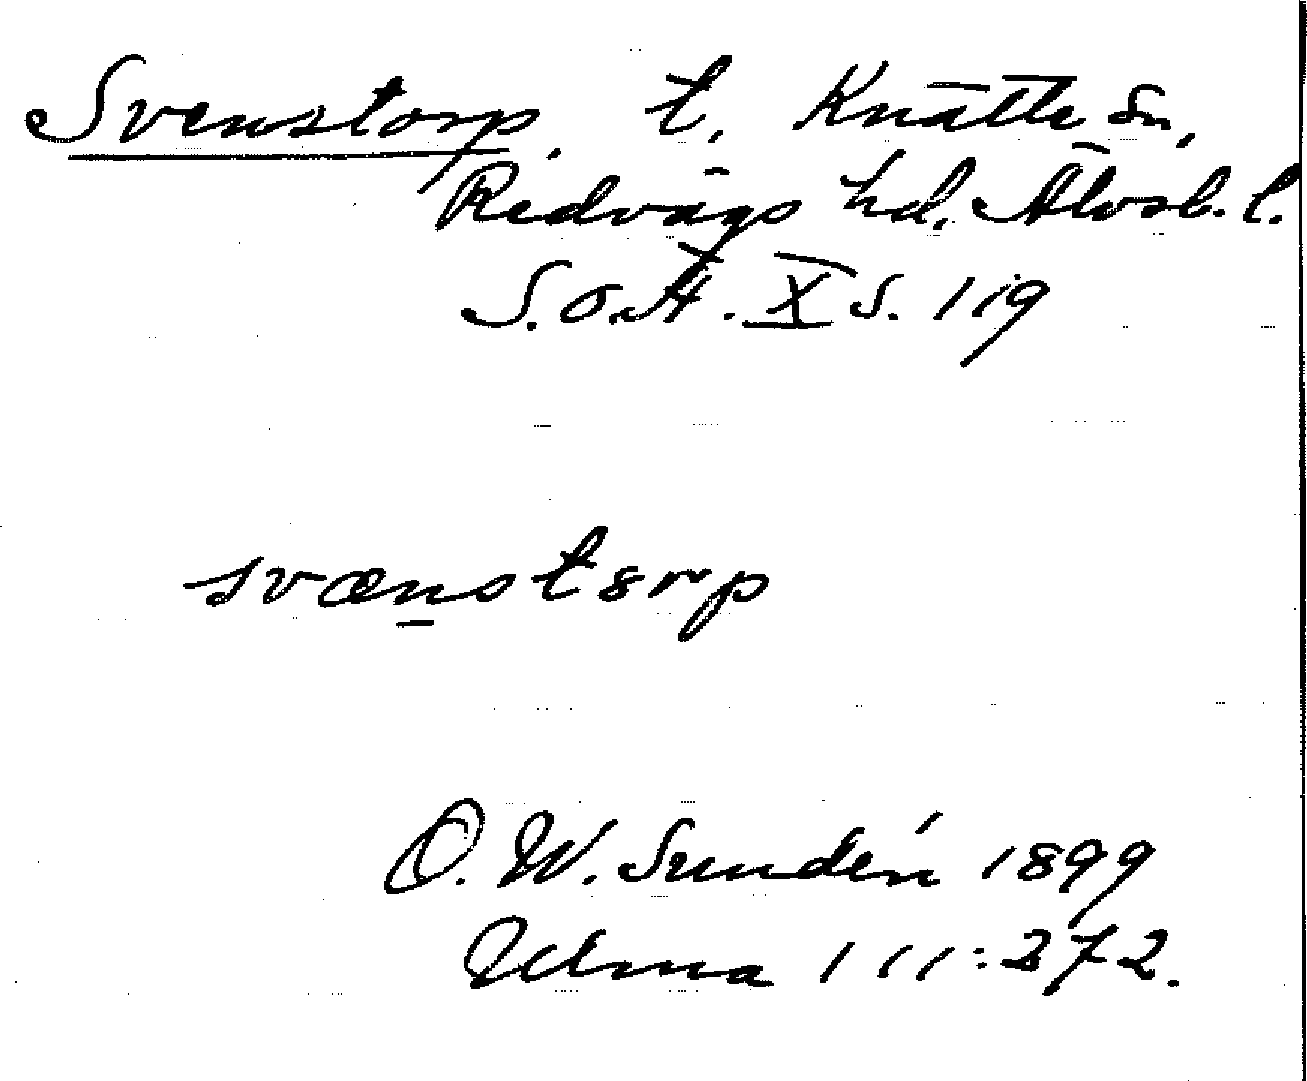 Svenstorp, t. Knätte sn,
Redvägs hd. Älvsb. l.
S.O.Ä. X s. 119
svænstɵrp
O. W. Sundén 1899
Ulma 111:272.